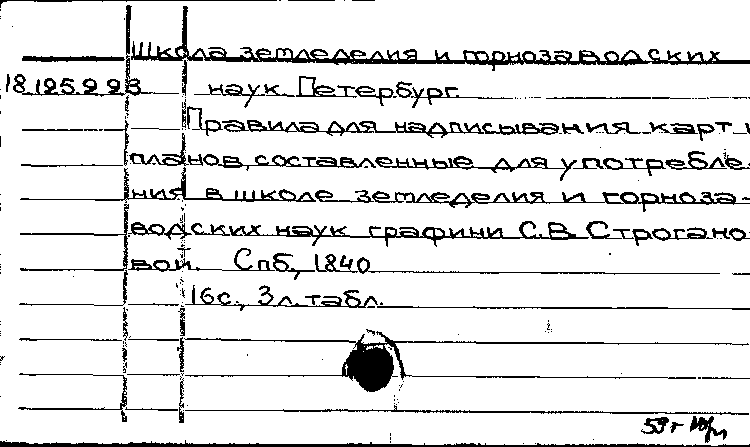 Школа земледелия и горнозаводских
18.195.2.23 наук. Петербург.
Правила для надписывания карт и
планов, составленные для употребле-
ния в школе земледелия и горноза-
водских наук графини С.В. Строгано-
вой. Спб., 1840
16с., 3л. табл.
59г